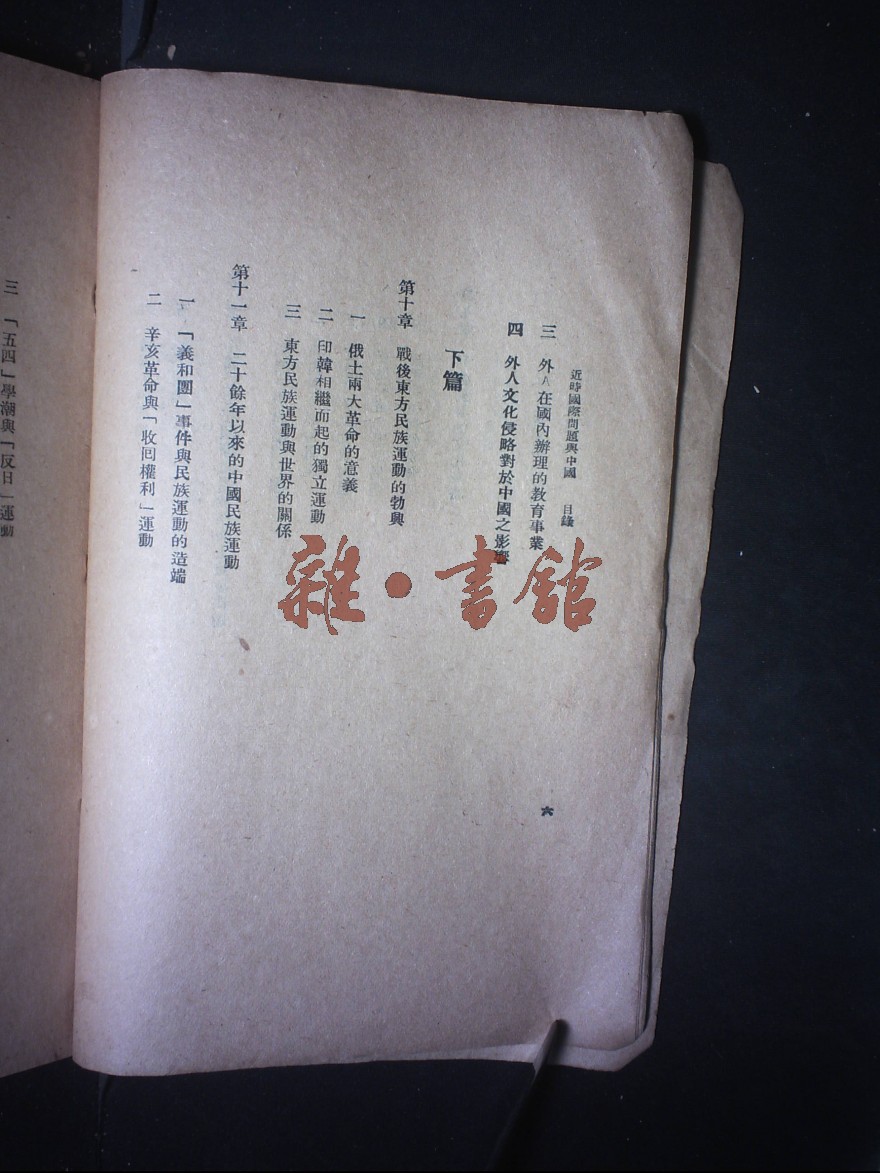 近時國際問題與中國 目錄
三 外人在國內辦理的教育事業
四 外人文化侵略對於中國之影響
下篇
第十章 戰後東方民族運動的勃興
一 俄土兩大革命的意義
二 印韓相繼而起的獨立運動
三 東方民族運動與世界的關係
第十一章 二十餘年以來的中國民族運動
一 「義和團」事件與民族運動的造端
二 辛亥革命與「收回權利」運動
六
三 「五四」學潮與「反日」運動
雜·書館